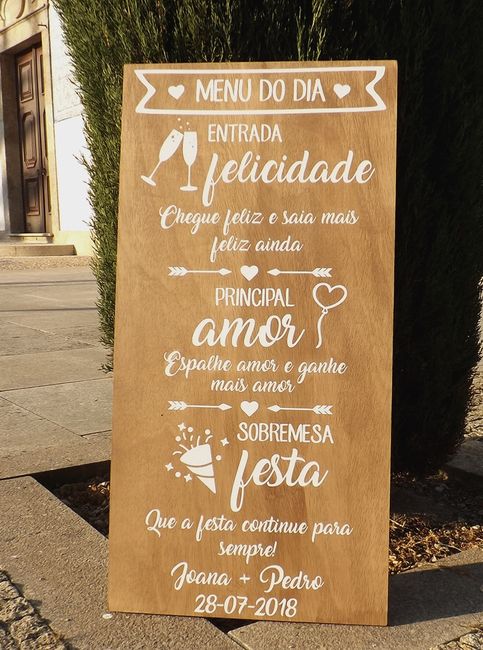 MENU DO DIA
ENTRADA
felicidade
Chegue feliz e saia mais
feliz ainda
PRINCIPAL
amor
Espalhe amor e ganhe
mais amor
SOBREMESA
festa
Que a festa continue para
sempre!
Joana + Pedro
28-07-2018